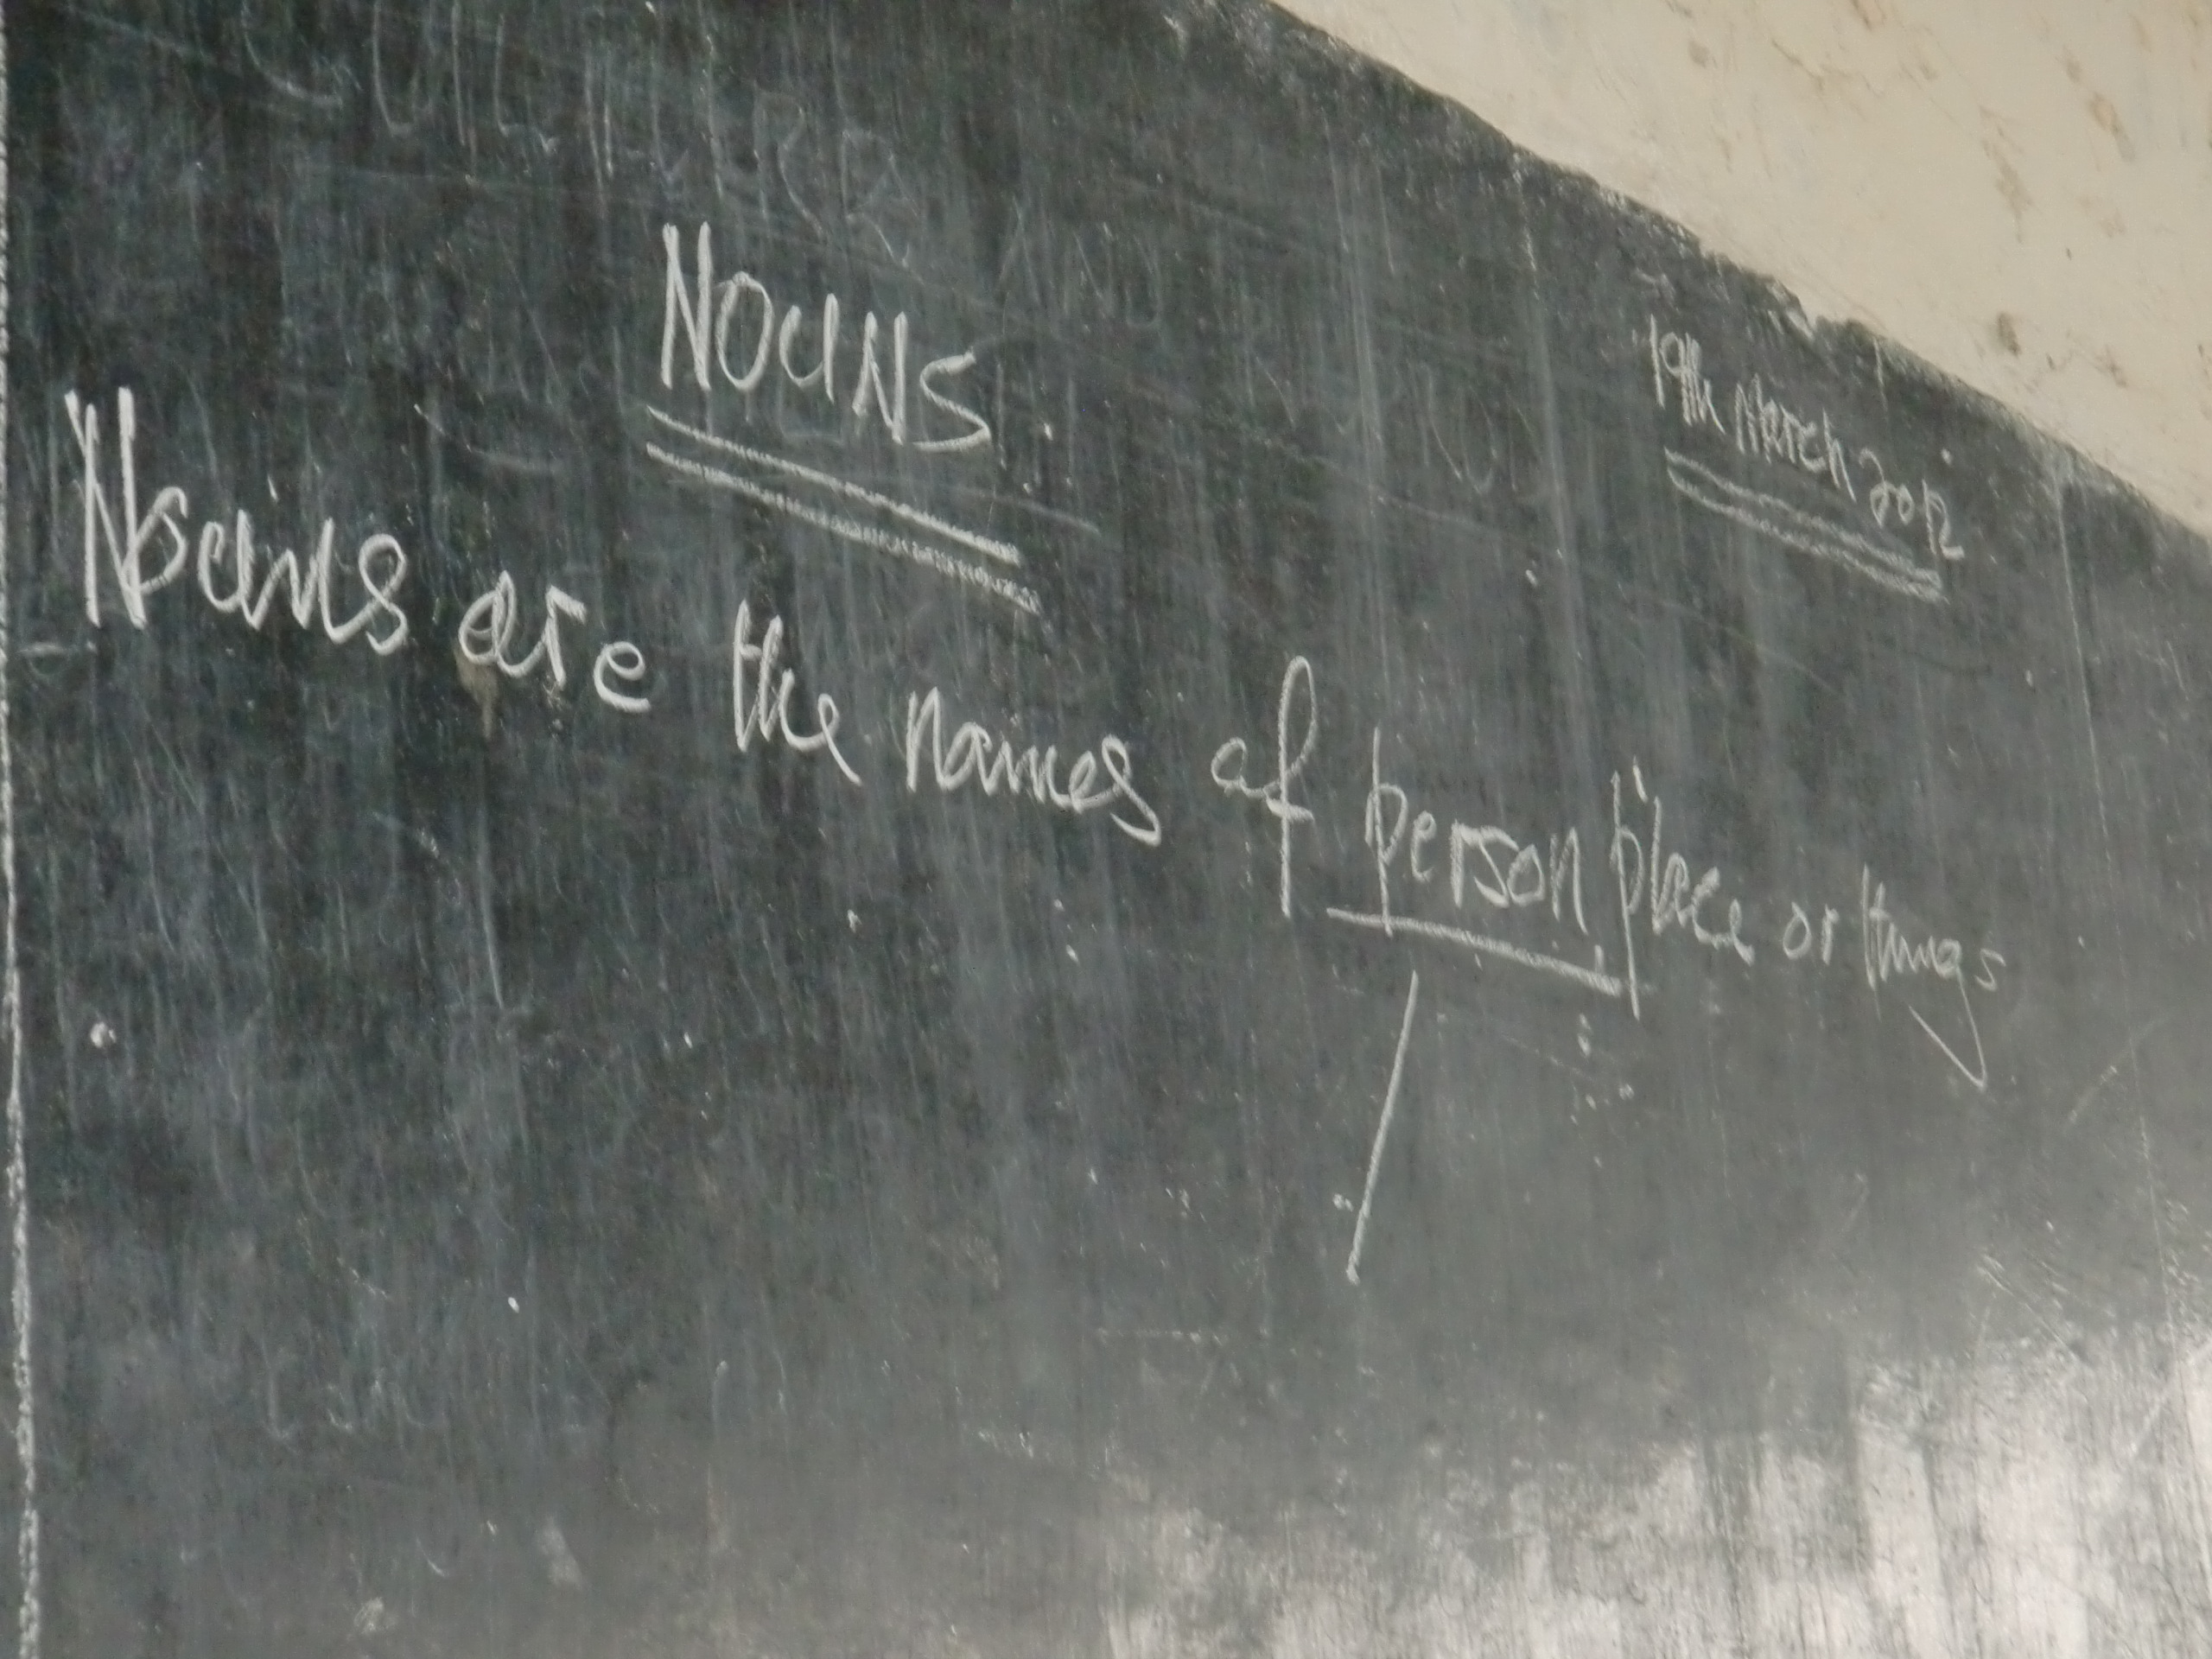 NOUNS
19th March 2012
Nouns are the names of person, place or things